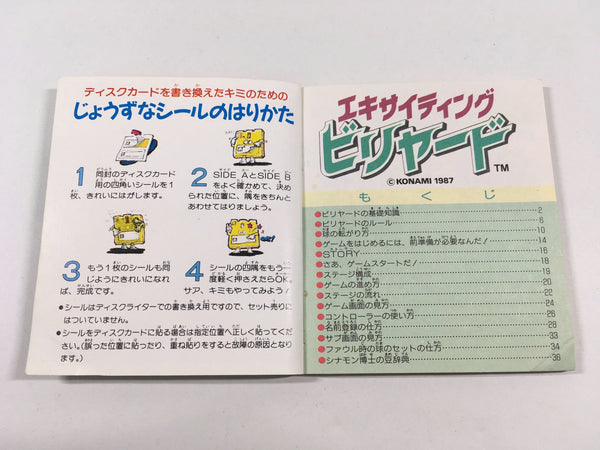 ディスクカードを書き換えたキミのための
じょうずなシールのはりかた
1 同封のディスクカード
用の四角いシールを1
枚、きれいにはがします。
2 SIDE AとSIDE B
をよく確かめて、決め
られた位置に、隅をきちんと
あわせてはりましょう。
3 もう1枚のシールも同
じようにきれいになれ
ば、完成です。
4 シールの四隅をもう一
度軽く押さえたらOK。
サア、キミもやってみよう!
●シールはディスクライターでの書き換え用ですので、セット売りに
はついていません。
●シールをディスクカードに貼る場合は指定位置へ正しく貼ってくだ
さい。(誤った位置に貼ったり、重ね貼りをすると故障の原因となり
ます。)
エキサイティング
ビリヤード™
©KONAMI 1987
もくじ
●ビリヤードの基礎知識 2
●ビリヤードのルール 6
●球の転がり方 10
●ゲームをはじめるには、前準備が必要なんだ! 14
●STORY 16
●さあ、ゲームスタートだ! 18
●ステージ構成 19
●ゲームの進め方 20
●ステージの流れ 22
●ゲーム画面の見方 24
●コントローラーの使い方 26
●名前登録の仕方 28
●サブ画面の見方 33
●ファウル時の球のセットの仕方 34
●シナモン博士の豆辞典 36